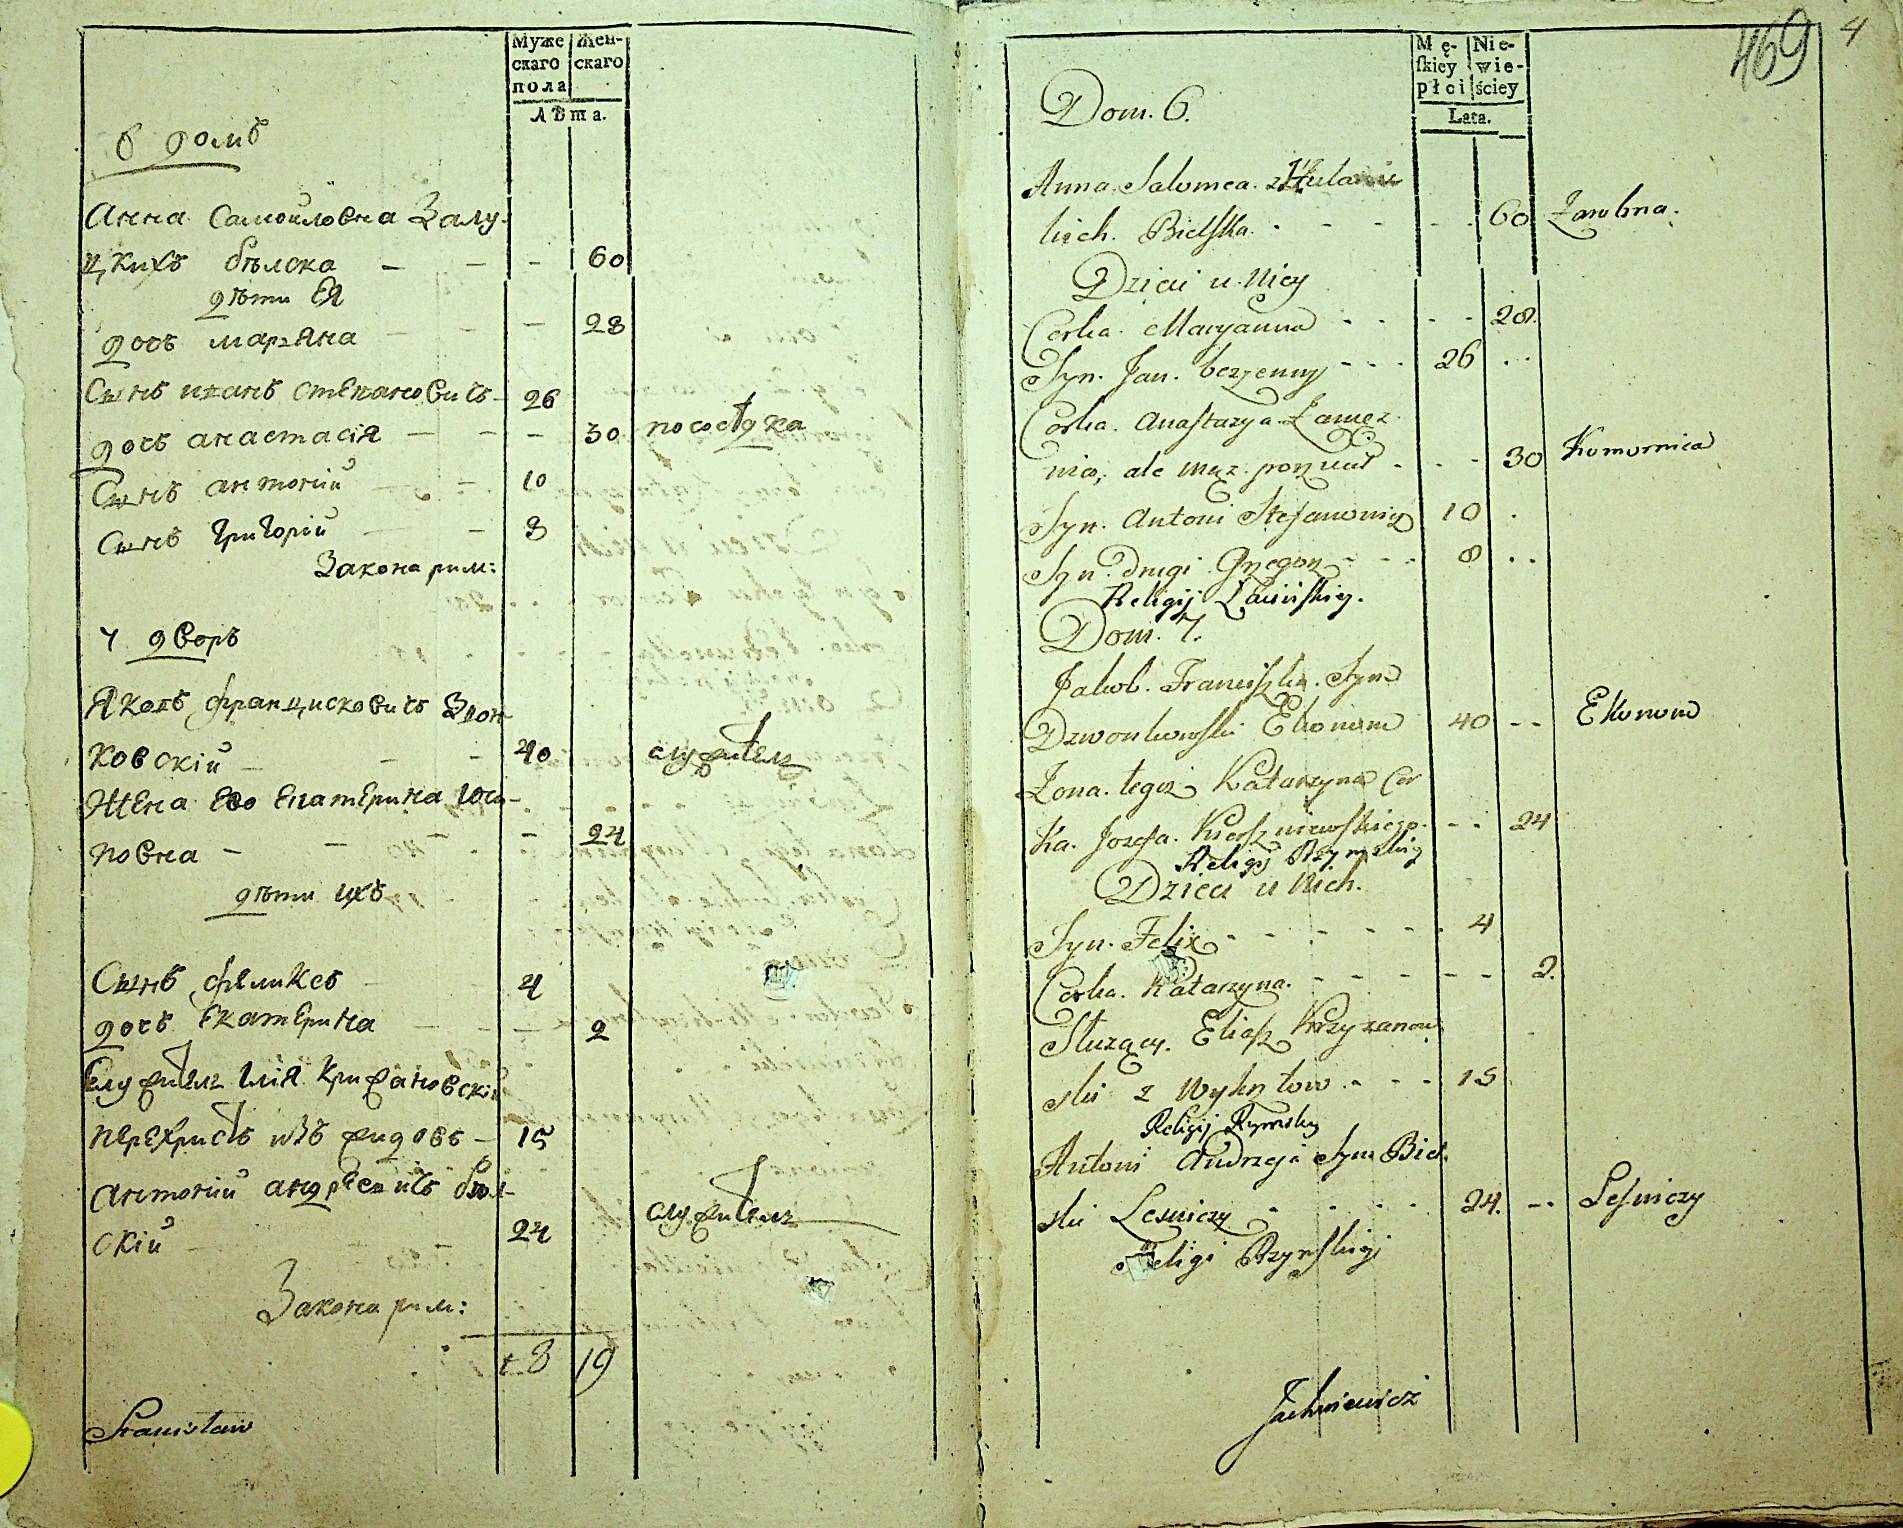 Муже
скаго
пола
Жен-
скаго
Лѣта.
6 домъ
Анна Самойловна Залу-
цкихъ бѣлска - - - 60
дѣти Ея
дочь марьяна - - - 28
Сынъ иванъ степановичъ - 26
дочь анастасія - - - 30 пососѣдка
Сынъ антоній - - 10
Сынъ Григорій - - 8
Закона рим:
7 дворъ
Яковъ францисковичъ Звон-
ковскій - - - 40 служитель
Жена Его Екатерина Юси-
повна - - - 24
дѣти ихъ
Сынъ феликсъ - 4
дочь Екатерина - - - 2
Служитель Илія Крижановскій
перехристъ изъ жидовъ - 15
антоній андреевичъ бѣл-
скій - - 24 служитель
Закона рим:
8 19
Stanisław
469 4
Mę-
ſkiey
płci
Nie-
wie-
ściey
Lata.
Dom. 6.
Anna Salomea
Bielska. - - - - 60
Dzieci u Niey
Corka. Maryanna - - - - 28.
Syn. Jan. bezżenny - - - 26 - -
Corka. Anastazya Zamęż
nia, ale mąż porzucił - - - 30 Komornica
Syn. Antoni Stefanowicz 10 -
Syn. drugi Grzegorz - - - 8 - -
Religij Łacińskiey.
Dom. 7.
Jakob. Franciszka. Syn
Dzwonkowski Ekonom 40 - - Ekonom
Żona. tegoż Katarzyna Cor
ka. Jozefa. - - 24
Religij Rzymskiey
Dzieci u Nich.
Syn. Felix - - - - - - 4
Corka. Katarzyna. - - - - - 2.
Służący. Eliasz Krzyżanow
ski z Wykrztow - - - 15
Religij Rzymskiey
Antoni Andrzeja Syn Biel.
ski Leśniczy - - - - 24. - - Leśniczy
Religi Rzymskiey
Jachniewicz